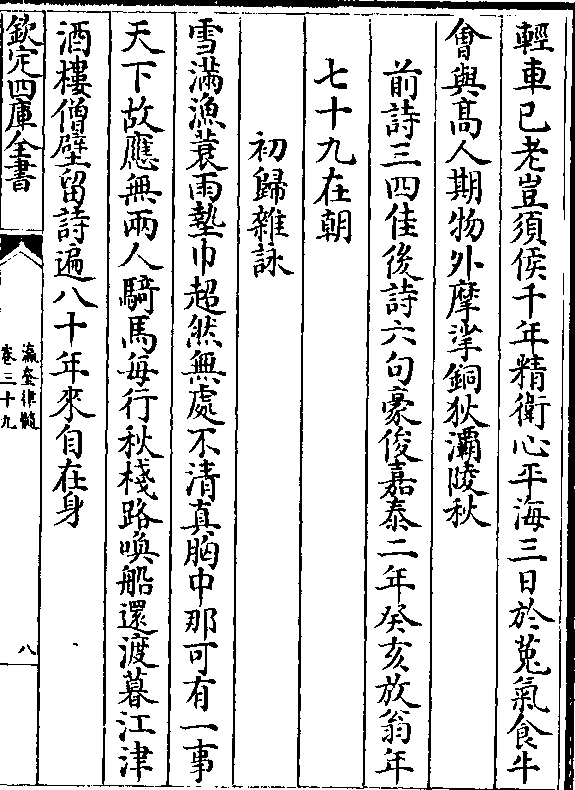 輕車已老豈須侯千年精衛心平海三日於菟氣食牛
會與髙人期物外摩挲銅狄灞陵秋
前詩三四佳後詩六句豪俊嘉泰二年癸亥放翁年
七十九在朝
初歸雜詠
雪滿漁蓑雨墊巾超然無處不清真胸中那可有一事
天下故應無兩人騎馬每行秋棧路喚船還渡暮江津
酒樓僧壁留詩遍八十年來自在身
欽定四庫全書
瀛奎律髓
卷三十九
八